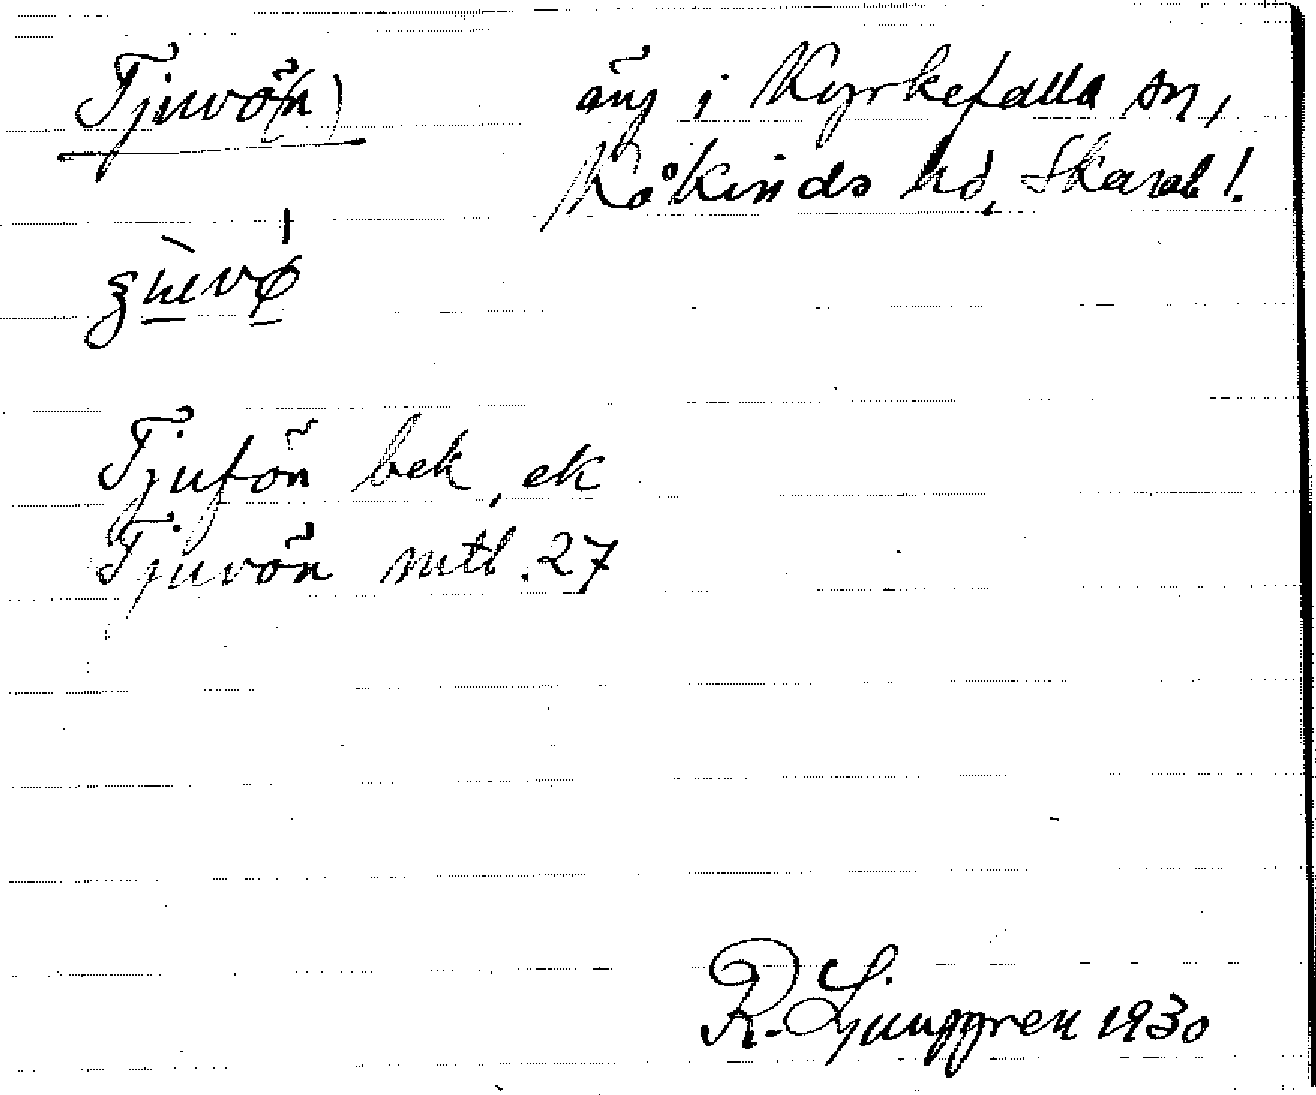 Tjuvö(n) äng i Kyrkefalla sn,
Kåkinds hd, Skarab !.
Tjufön bek, ek
Tjuvön mtl. 27
R. Ljunggren 1930